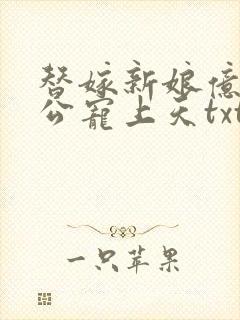 替嫁新娘亿
公宠上天txt
一只苹果